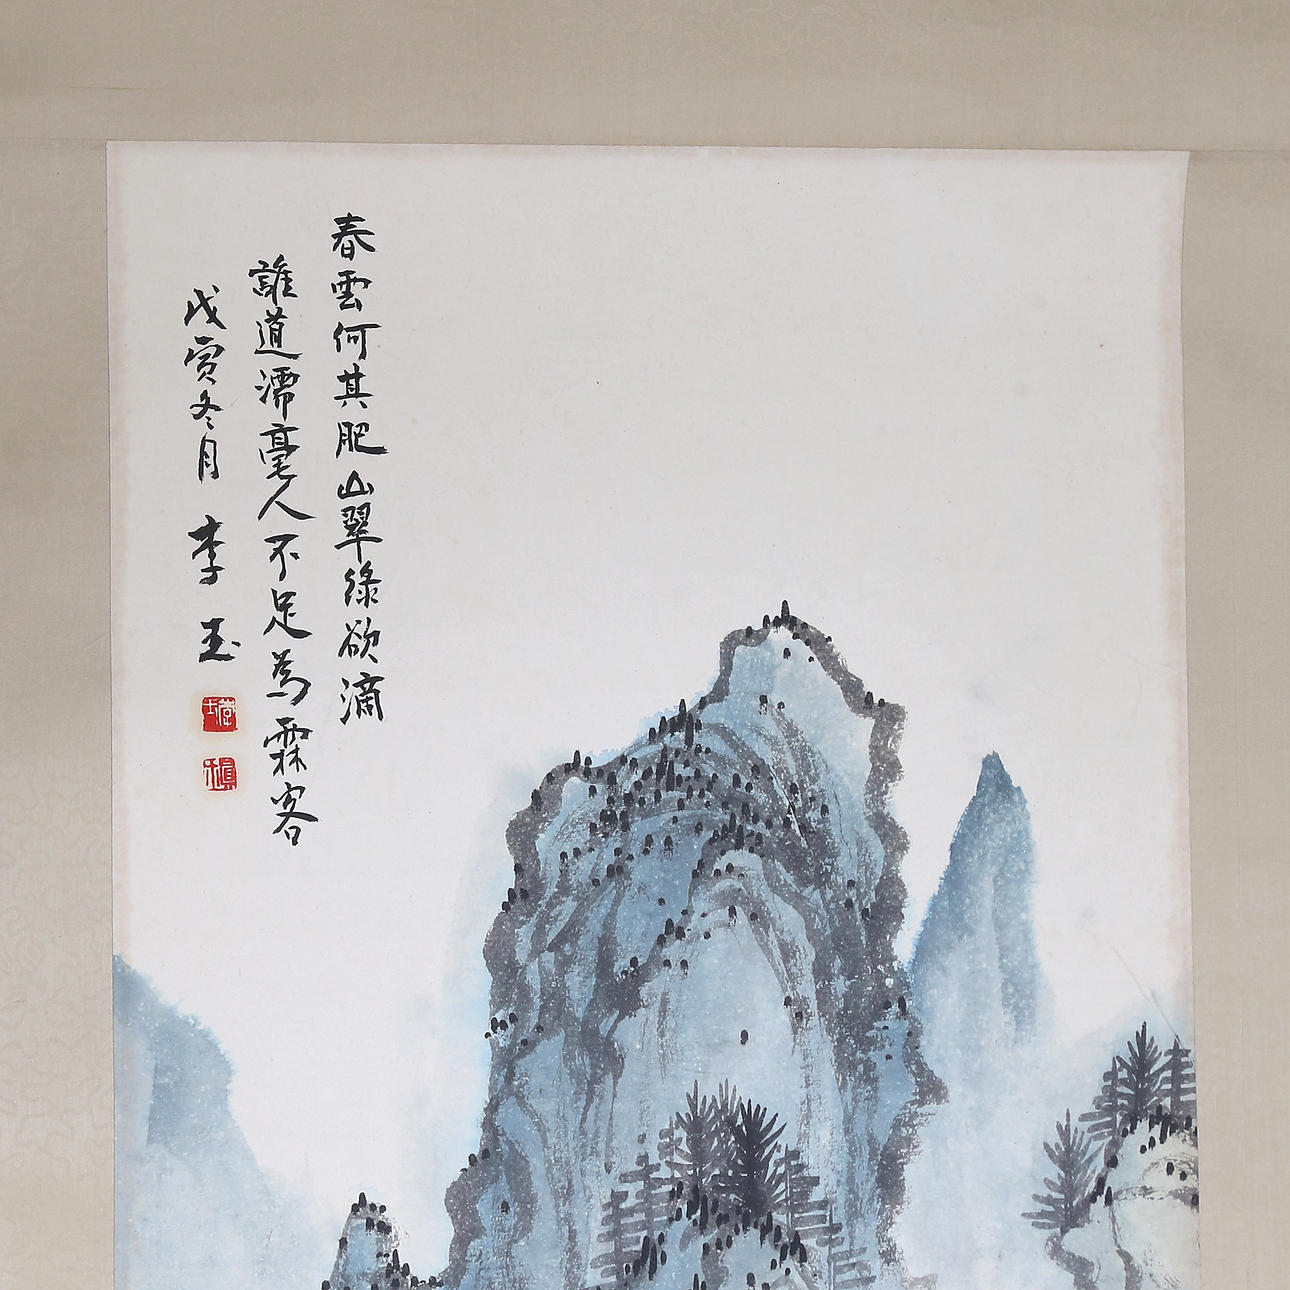 春雲何其肥山翠綠欲滴
誰道濡毫人不足為霖客
戊寅冬月 李